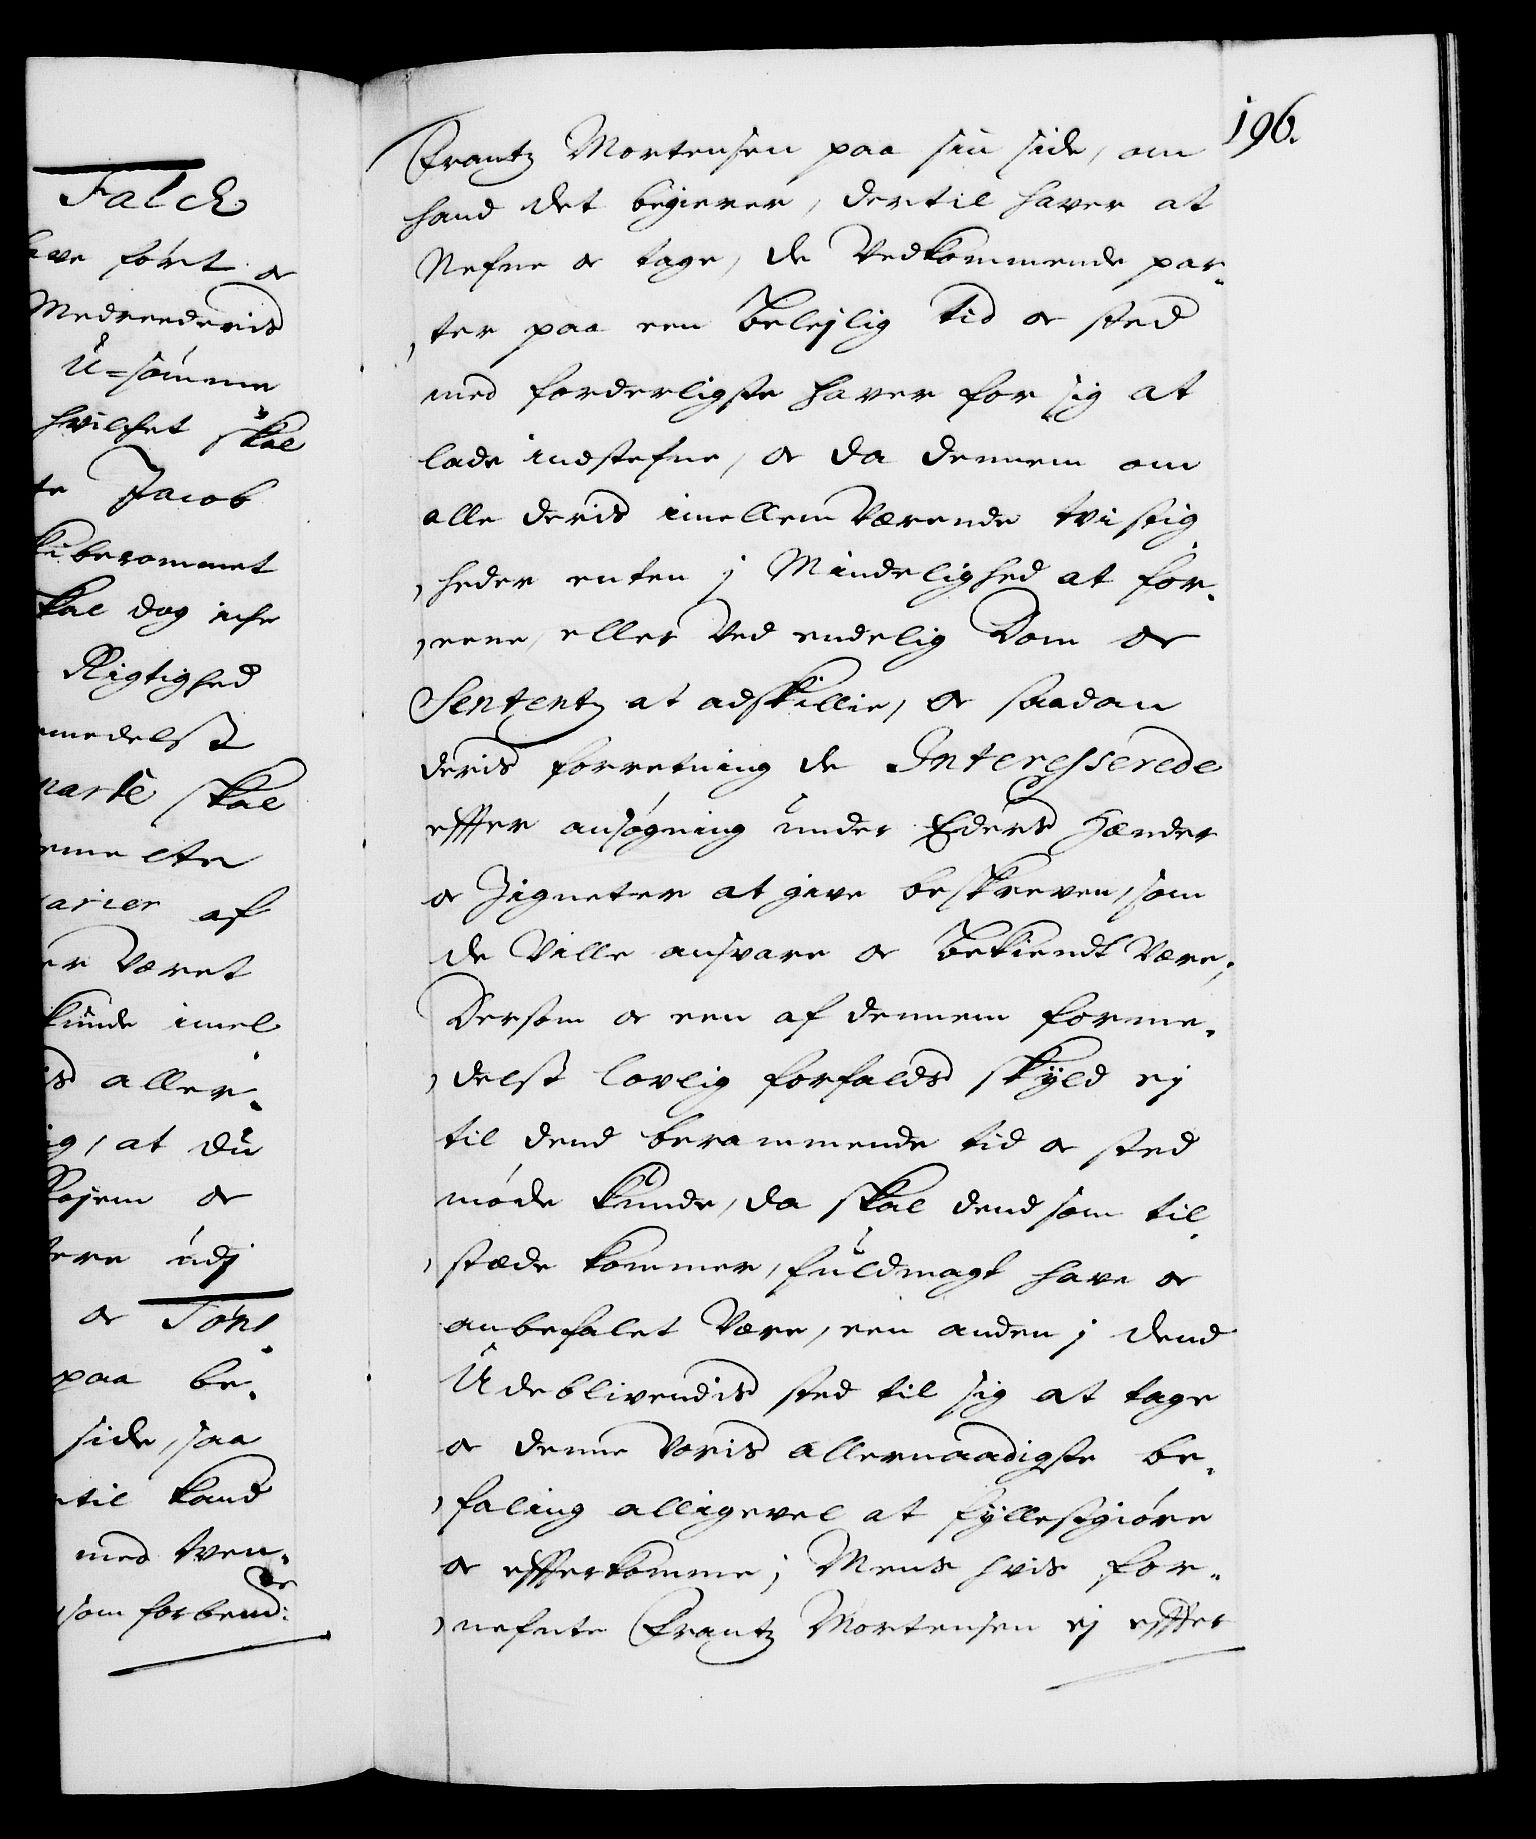 Falck
have ført or
Medreederis
U=sømme
hvilchet skal
te Jacob
berommet
skal dog iche
Rigtighed
medelst
parte skal
arier af
er været
kunde imel
is aller-
ig, at du
or
udj
or Tøns
paa be-
side, saa
til kand
med tven-
de
som forbemd:
196.
Frantz Mortensen paa sin side, om
hand det begierer, dertil haver at
Nefne or tage, de Vedkommende par-
ter paa een beleylig tid or sted
med forderligste haver for sig at
lade indstefne, or da dennem om
alle deris imellem Værende tvistig-
heder enten j Mindelighed at for-
eene, eller Ved endelig Dom or
Sententz at adskillie, or saadan
deris forretning de Interesserede
effter ansøgning under Eders Hænder
or Zigneter at give beskreven, som
de Ville ansvare or bekiendt Være;
Dersom or een af dennem forme-
delst lovlig forfalds skyld ej
til dend berammende tid or sted
møde kunde, da skal dend som til-
stæde kommer, fuldmagt have or
anbefalet Være, een anden j dend
Udeblivendis sted til sig at tage
or denne Voris allernaadigste be-
faling alligevel at fyllestgiøre
or effterkomme; Mens hvis for-
nefnte Frantz Mortensen ej effter